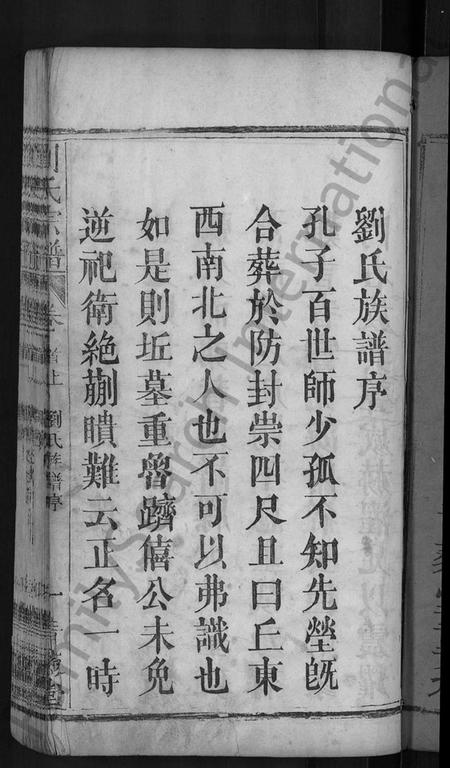 劉氏族譜序
孔子百世師少孤不知先塋旣
合葬於防封崇四尺且曰丘東
西南北之人也不可以弗識也
如是則坵墓重魯躋僖公未免
逆祀衛絶蒯聵難云正名一時
劉氏宗譜 卷首上 劉氏族譜序 一
FamilySearch International